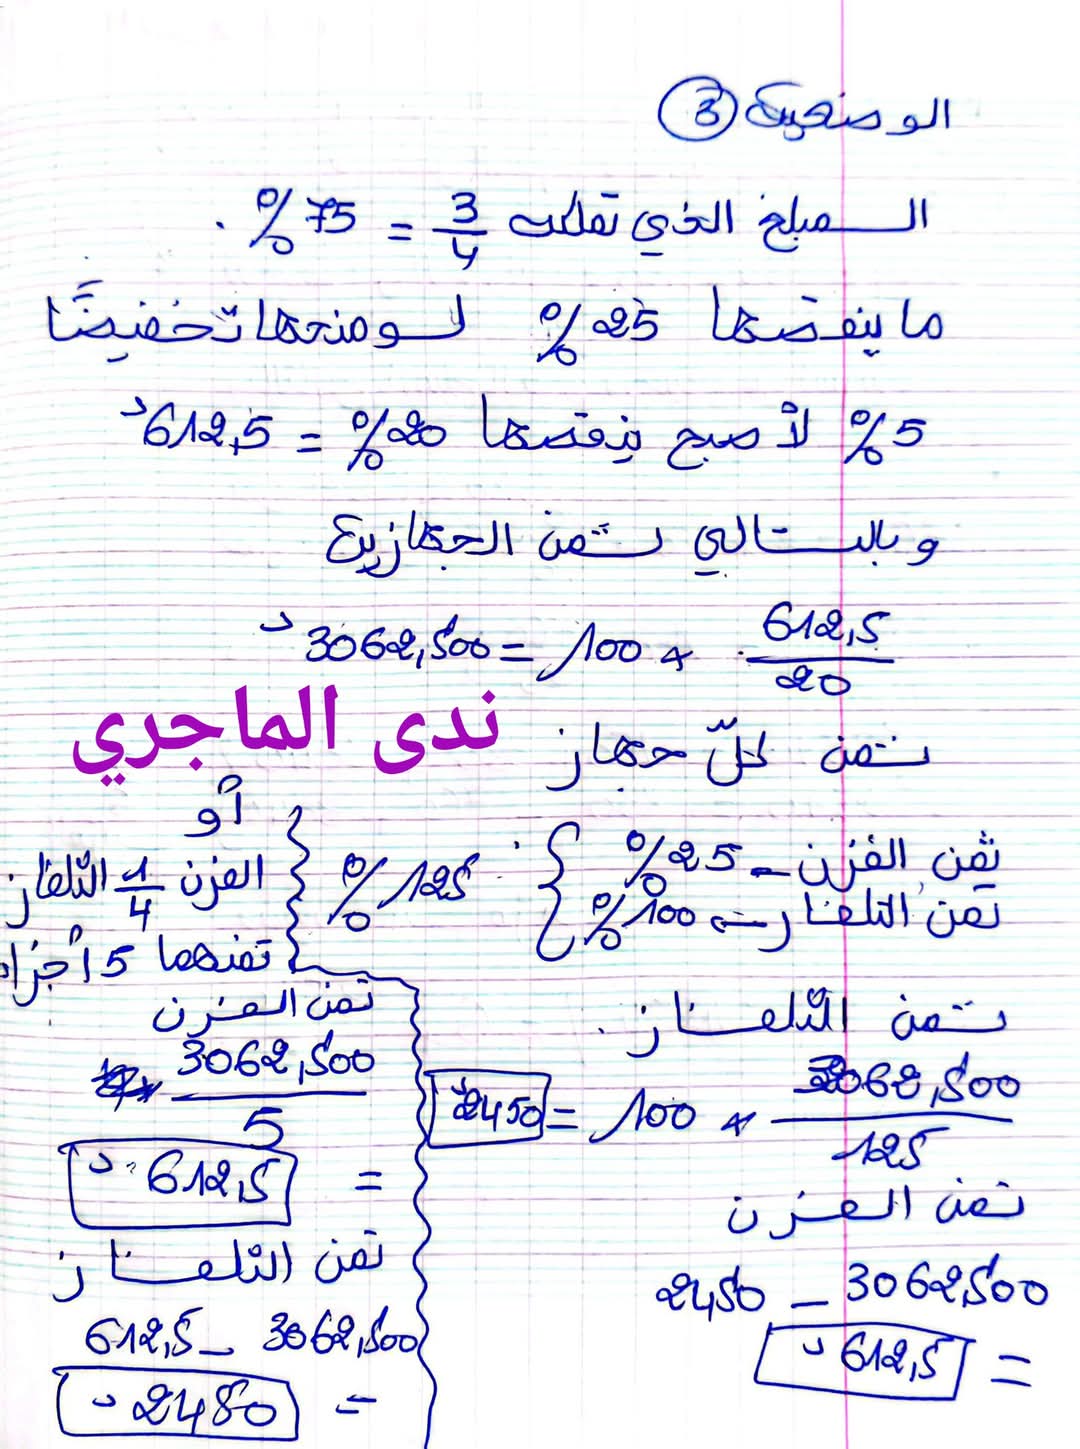 الوضعية ③
المبلغ الذي تملك 3/4 = 75 %.
ما ينقصها 25 % لو منحها تخفيضًا
5 % لأصبح ينقصها 20 % = 612,5 د
وبالتالي ثمن الجهازين
612,5/20 × 100 = 3062,500 د
ندى الماجري
ثمن كلّ جهاز
ثمن الفرن _ 25 %
ثمن التلفاز _ 100 %
125 %
ثمن التلفاز
3062,500/125 × 100 = 2450 د
ثمن الفرن
3062,500 _ 2450
= 612,5 د
أو
الفرن 1/4 التلفاز
ثمنهما 5 أجزاء
ثمن الفرن
3062,500/5
= 612,5 د
ثمن التلفاز
3062,500 _ 612,5
= 2450 د